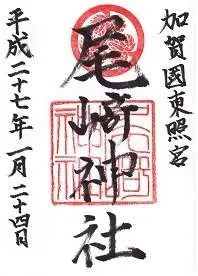 加賀國東照宮
尾﨑神社
平成二十七年一月二十四日